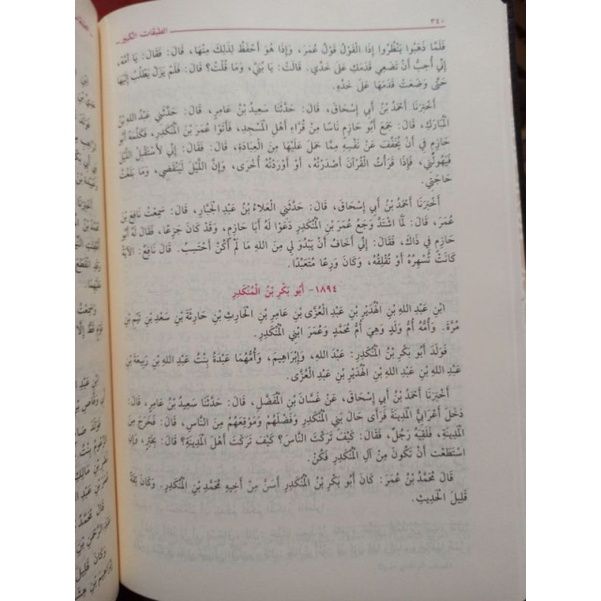 ٣٤٠
الطبقات الكبير
فَلَمَّا ذَهَبُوا يَنْظُرُوا إِذَا الْقَوْلُ قَوْلُ عُمَرَ، وَإِذَا هُوَ أَحْفَظُ لِذَلِكَ مِنْهَا، قَالَ: فَقَالَ: يَا أُمَّهْ،
إِنِّي أُحِبُّ أَنْ تَضَعِي قَدَمَكِ عَلَى خَدِّي. قَالَتْ: يَا بُنَيَّ، وَمَا قُلْتَ؟ قَالَ: فَلَمْ يَزَلْ يَطْلُبُ إِلَيْهَا
حَتَّى وَضَعَتْ قَدَمَهَا عَلَى خَدِّهِ.
أَخْبَرَنَا أَحْمَدُ بْنُ أَبِي إِسْحَاقَ، قَالَ: حَدَّثَنَا سَعِيدُ بْنُ عَامِرٍ، قَالَ: حَدَّثَنِي عَبْدُ اللهِ بْنُ
الْمُبَارَكِ، قَالَ: جَمَعَ أَبُو حَازِمٍ نَاسًا مِنْ قُرَّاءِ أَهْلِ الْمَسْجِدِ، فَأَتَوْا عُمَرَ بْنَ الْمُنْكَدِرِ، فَكَلَّمَهُ أَبُو
حَازِمٍ فِي أَنْ يُخَفِّفَ عَنْ نَفْسِهِ مِمَّا حَمَلَ عَلَيْهَا مِنَ الْعِبَادَةِ، قَالَ: فَقَالَ: إِنِّي لَأَسْتَقْبِلُ اللَّيْلَ
فَيَهُولُنِي، فَإِذَا قَرَأْتُ الْقُرْآنَ أَصْدَرْتُهُ، أَوْ أَوْرَدْتُهُ أُخْرَى، وَإِنَّ اللَّيْلَ لَيَنْقَضِي، وَمَا بَلَغْتُ
حَاجَتِي.
أَخْبَرَنَا أَحْمَدُ بْنُ أَبِي إِسْحَاقَ، قَالَ: حَدَّثَنِي الْعَلَاءُ بْنُ عَبْدِ الْجَبَّارِ، قَالَ: سَمِعْتُ نَافِعَ بْنَ
عُمَرَ، قَالَ: لَمَّا اشْتَدَّ وَجَعُ عُمَرَ بْنِ الْمُنْكَدِرِ دَعَوْا لَهُ أَبَا حَازِمٍ، وَقَدْ كَانَ جَزِعًا، فَقَالَ لَهُ أَبُو
حَازِمٍ فِي ذَاكَ، فَقَالَ: إِنِّي أَخَافُ أَنْ يَبْدُوَ لِي مِنَ اللهِ مَا لَمْ أَكُنْ أَحْتَسِبُ. قَالَ نَافِعٌ: الْآيَةُ
كَانَتْ تُسْهِرُهُ أَوْ تُقْلِقُهُ، وَكَانَ وَرِعًا مُتَعَبِّدًا.
١٨٩٤- أَبُو بَكْرِ بْنُ الْمُنْكَدِرِ
ابْنِ عَبْدِ اللهِ بْنِ الْهُدَيْرِ بْنِ عَبْدِ الْعُزَّى بْنِ عَامِرِ بْنِ الْحَارِثِ بْنِ حَارِثَةَ بْنِ سَعْدِ بْنِ تَيْمِ بْنِ
مُرَّةَ. وَأُمُّهُ أُمُّ وَلَدٍ وَهِيَ أُمُّ مُحَمَّدٍ وَعُمَرَ ابْنَيِ الْمُنْكَدِرِ.
فَوَلَدَ أَبُو بَكْرِ بْنُ الْمُنْكَدِرِ: عَبْدَ اللهِ، وَإِبْرَاهِيمَ، وَأُمُّهُمَا عَبْدَةُ بِنْتُ عَبْدِ اللهِ بْنِ رَبِيعَةَ بْنِ
عَبْدِ اللهِ بْنِ عَبْدِ اللهِ بْنِ الْهُدَيْرِ بْنِ عَبْدِ الْعُزَّى.
أَخْبَرَنَا أَحْمَدُ بْنُ أَبِي إِسْحَاقَ، عَنْ غَسَّانَ بْنِ الْمُفَضَّلِ، قَالَ: حَدَّثَنَا سَعِيدُ بْنُ عَامِرٍ، قَالَ:
دَخَلَ أَعْرَابِيٌّ الْمَدِينَةَ فَرَأَى حَالَ بَنِي الْمُنْكَدِرِ وَفَضْلَهُمْ وَمَوْقِعَهُمْ مِنَ النَّاسِ، قَالَ: فَخَرَجَ مِنَ
الْمَدِينَةِ، فَلَقِيَهُ رَجُلٌ، فَقَالَ: كَيْفَ تَرَكْتَ النَّاسَ؟ كَيْفَ تَرَكْتَ أَهْلَ الْمَدِينَةِ؟ قَالَ: بِخَيْرٍ، فَإِنِ
اسْتَطَعْتَ أَنْ تَكُونَ مِنْ آلِ الْمُنْكَدِرِ فَكُنْ.
قَالَ مُحَمَّدُ بْنُ عُمَرَ: كَانَ أَبُو بَكْرِ بْنُ الْمُنْكَدِرِ أَسَنَّ مِنْ أَخِيهِ مُحَمَّدِ بْنِ الْمُنْكَدِرِ. وَكَانَ ثِقَةً
قَلِيلَ الْحَدِيثِ.